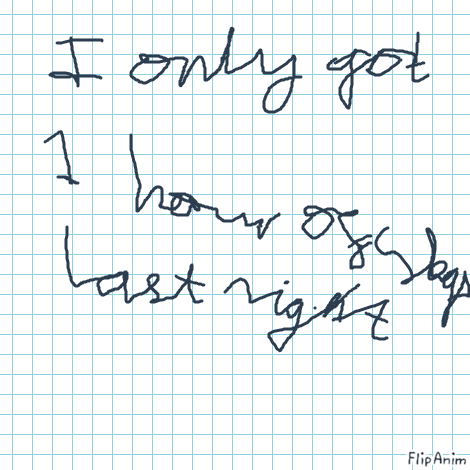 I only got
1 hour of sleep
last night
FlipAnim